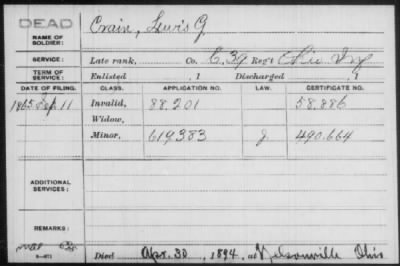 DEAD
NAME OF SOLDIER: Crain, Lewis G.
SERVICE: Late rank, Co. C. 39 Reg't Ohio Inf
TERM OF SERVICE: Enlisted , 1 Discharged , 1
DATE OF FILING. CLASS. APPLICATION NO. LAW. CERTIFICATE NO.
1865 Sep. 11 Invalid, 88.201 58.886
Widow,
Minor, 619383 J. 490.664
ADDITIONAL SERVICES:
REMARKS:
Died Apr. 30, 1894, at Nelsonville Ohio